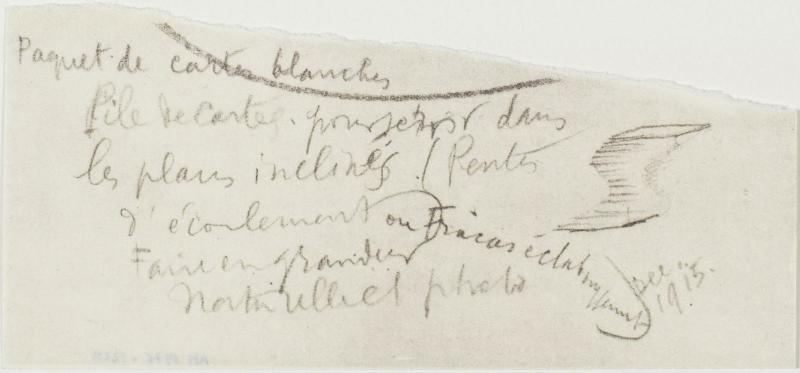 Paquet de cartes blanches
Pile de cartes. pour servir dans
les plans inclinés. (Pentes
d'écoulement ou Fracas éclaboussant)
Faire en grandeur
naturelle et photo
Dec
1915.